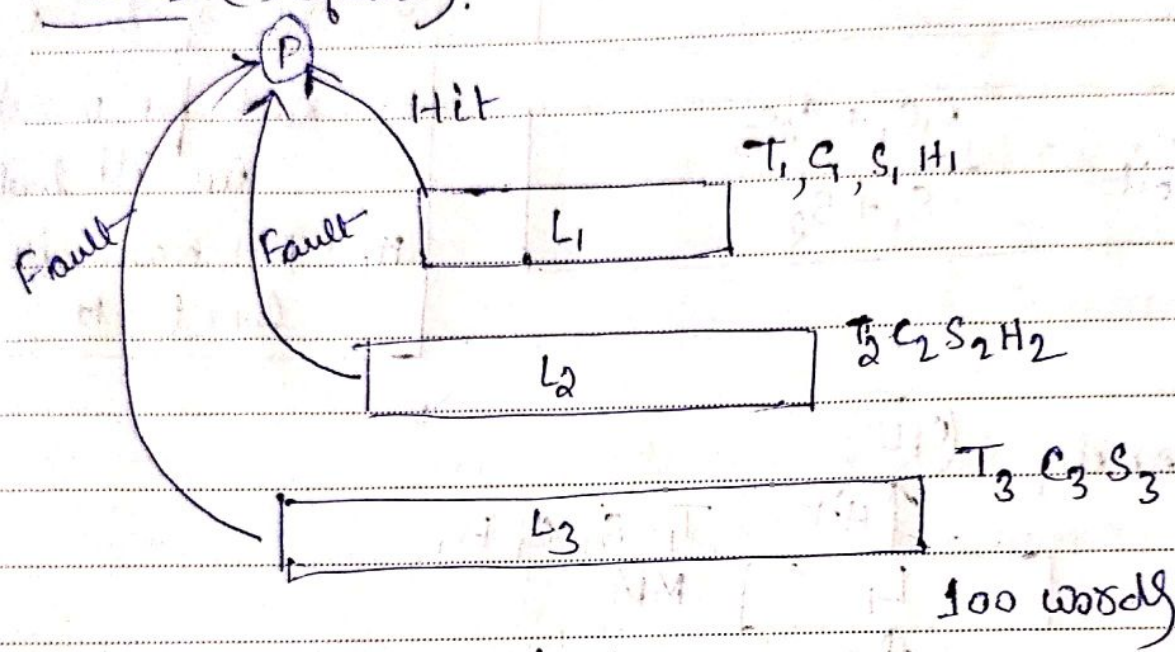 P
Hit
T1, C1, S1 H1
L1
Fault
Fault
T2 C2 S2 H2
L2
T3 C3 S3
L3
100 words